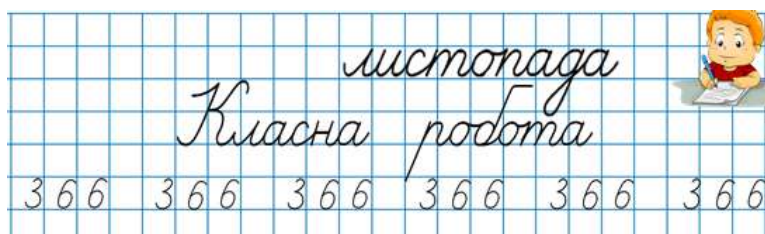 листопада
Класна робота
366 366 366 366 366 366